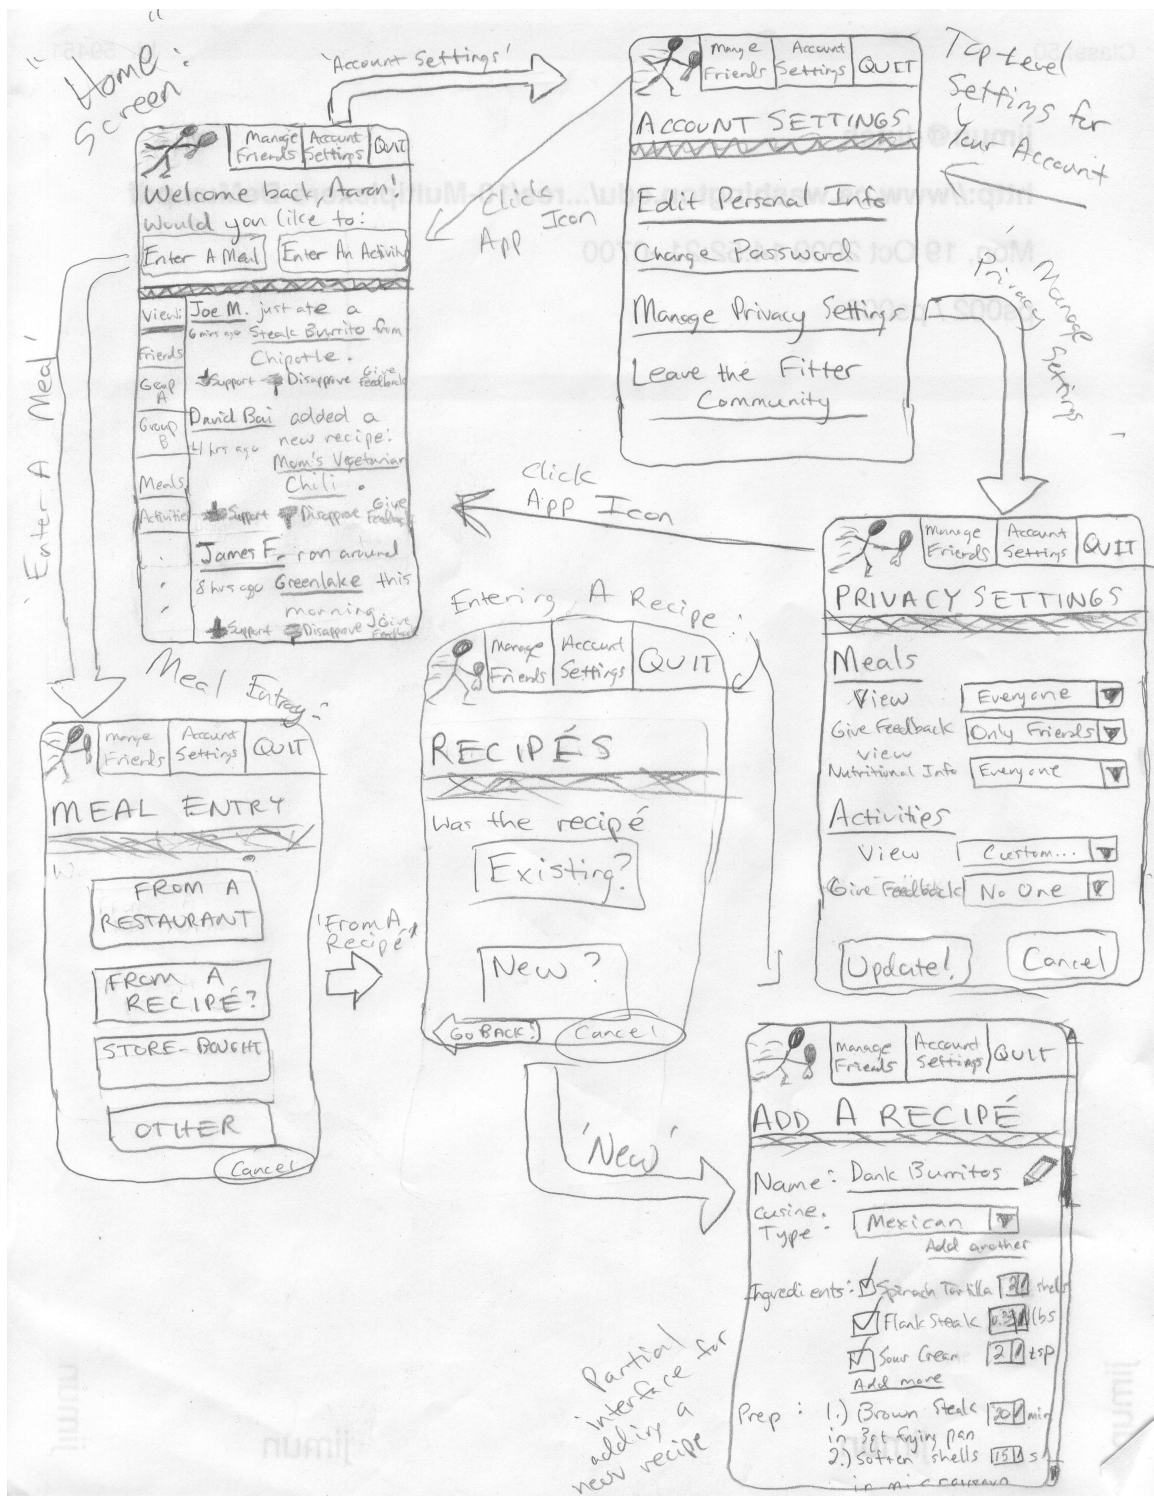 "Home"
Screen:
'Account Settings'
Manage Friends
Account Settings
QUIT
Welcome back, Aaron!
Would you like to:
Enter A Meal
Enter An Activity
View:
Friends
Group A
Group B
Meals
Activities
Joe M. just ate a
6 mins ago Steak Burrito from
Chipotle.
Support Disapprove Give Feedback
David Bai added a
4 hrs ago new recipe:
Mom's Vegetarian
Chili.
Support Disapprove Give Feedback
James F. ran around
8 hrs ago Greenlake this
morning.
Support Disapprove Give Feedback
Click
App Icon
Manage Friends
Account Settings
QUIT
ACCOUNT SETTINGS
Edit Personal Info
Change Password
Manage Privacy Settings
Leave the Fitter
Community
Top-Level
Settings for
Your Account
'Manage
Privacy
Settings'
Click
App Icon
Manage Friends
Account Settings
QUIT
PRIVACY SETTINGS
Meals
View Everyone
Give Feedback Only Friends
View
Nutritional Info Everyone
Activities
View Custom...
Give Feedback No One
Update!
Cancel
'Enter A Meal'
Meal Entry:
Manage Friends
Account Settings
QUIT
MEAL ENTRY
FROM A
RESTAURANT
FROM A
RECIPÉ?
STORE-BOUGHT
OTHER
Cancel
'From A
Recipé'
Entering A Recipe:
Manage Friends
Account Settings
QUIT
RECIPÉS
Was the recipé
Existing?
New?
GO BACK!
Cancel
'New'
Manage Friends
Account Settings
QUIT
ADD A RECIPÉ
Name: Dank Burritos
Cusine
Type: Mexican
Add another
Ingredients: Spinach Tortilla 2 shells
Flank Steak lbs
Sour Cream 2 tsp
Add more
Prep: 1.) Brown Steak 20 min
in 3qt frying pan
2.) Soften shells 15 s
in microwave
Partial
interface for
adding a
new recipe